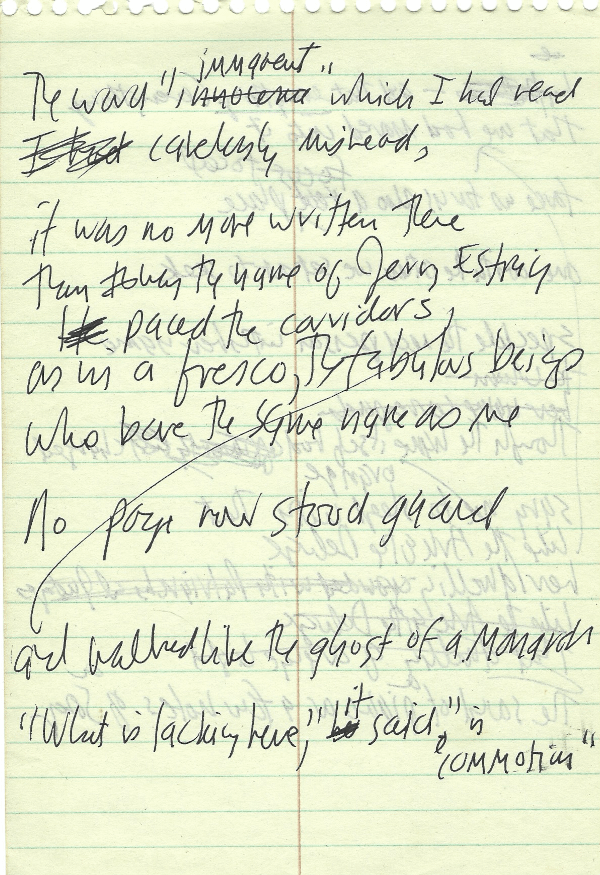 immanent"
The word "innocence which I had read
I had carelessly misread,
it was no more written there
than today the name of Jerry
It paced the corridors,
as in a fresco, the fabulous beings
who bore the same name as me
No page now stood guard
and walked like the ghost of a monarch
"What is lacking here," it said, "is
commotion"